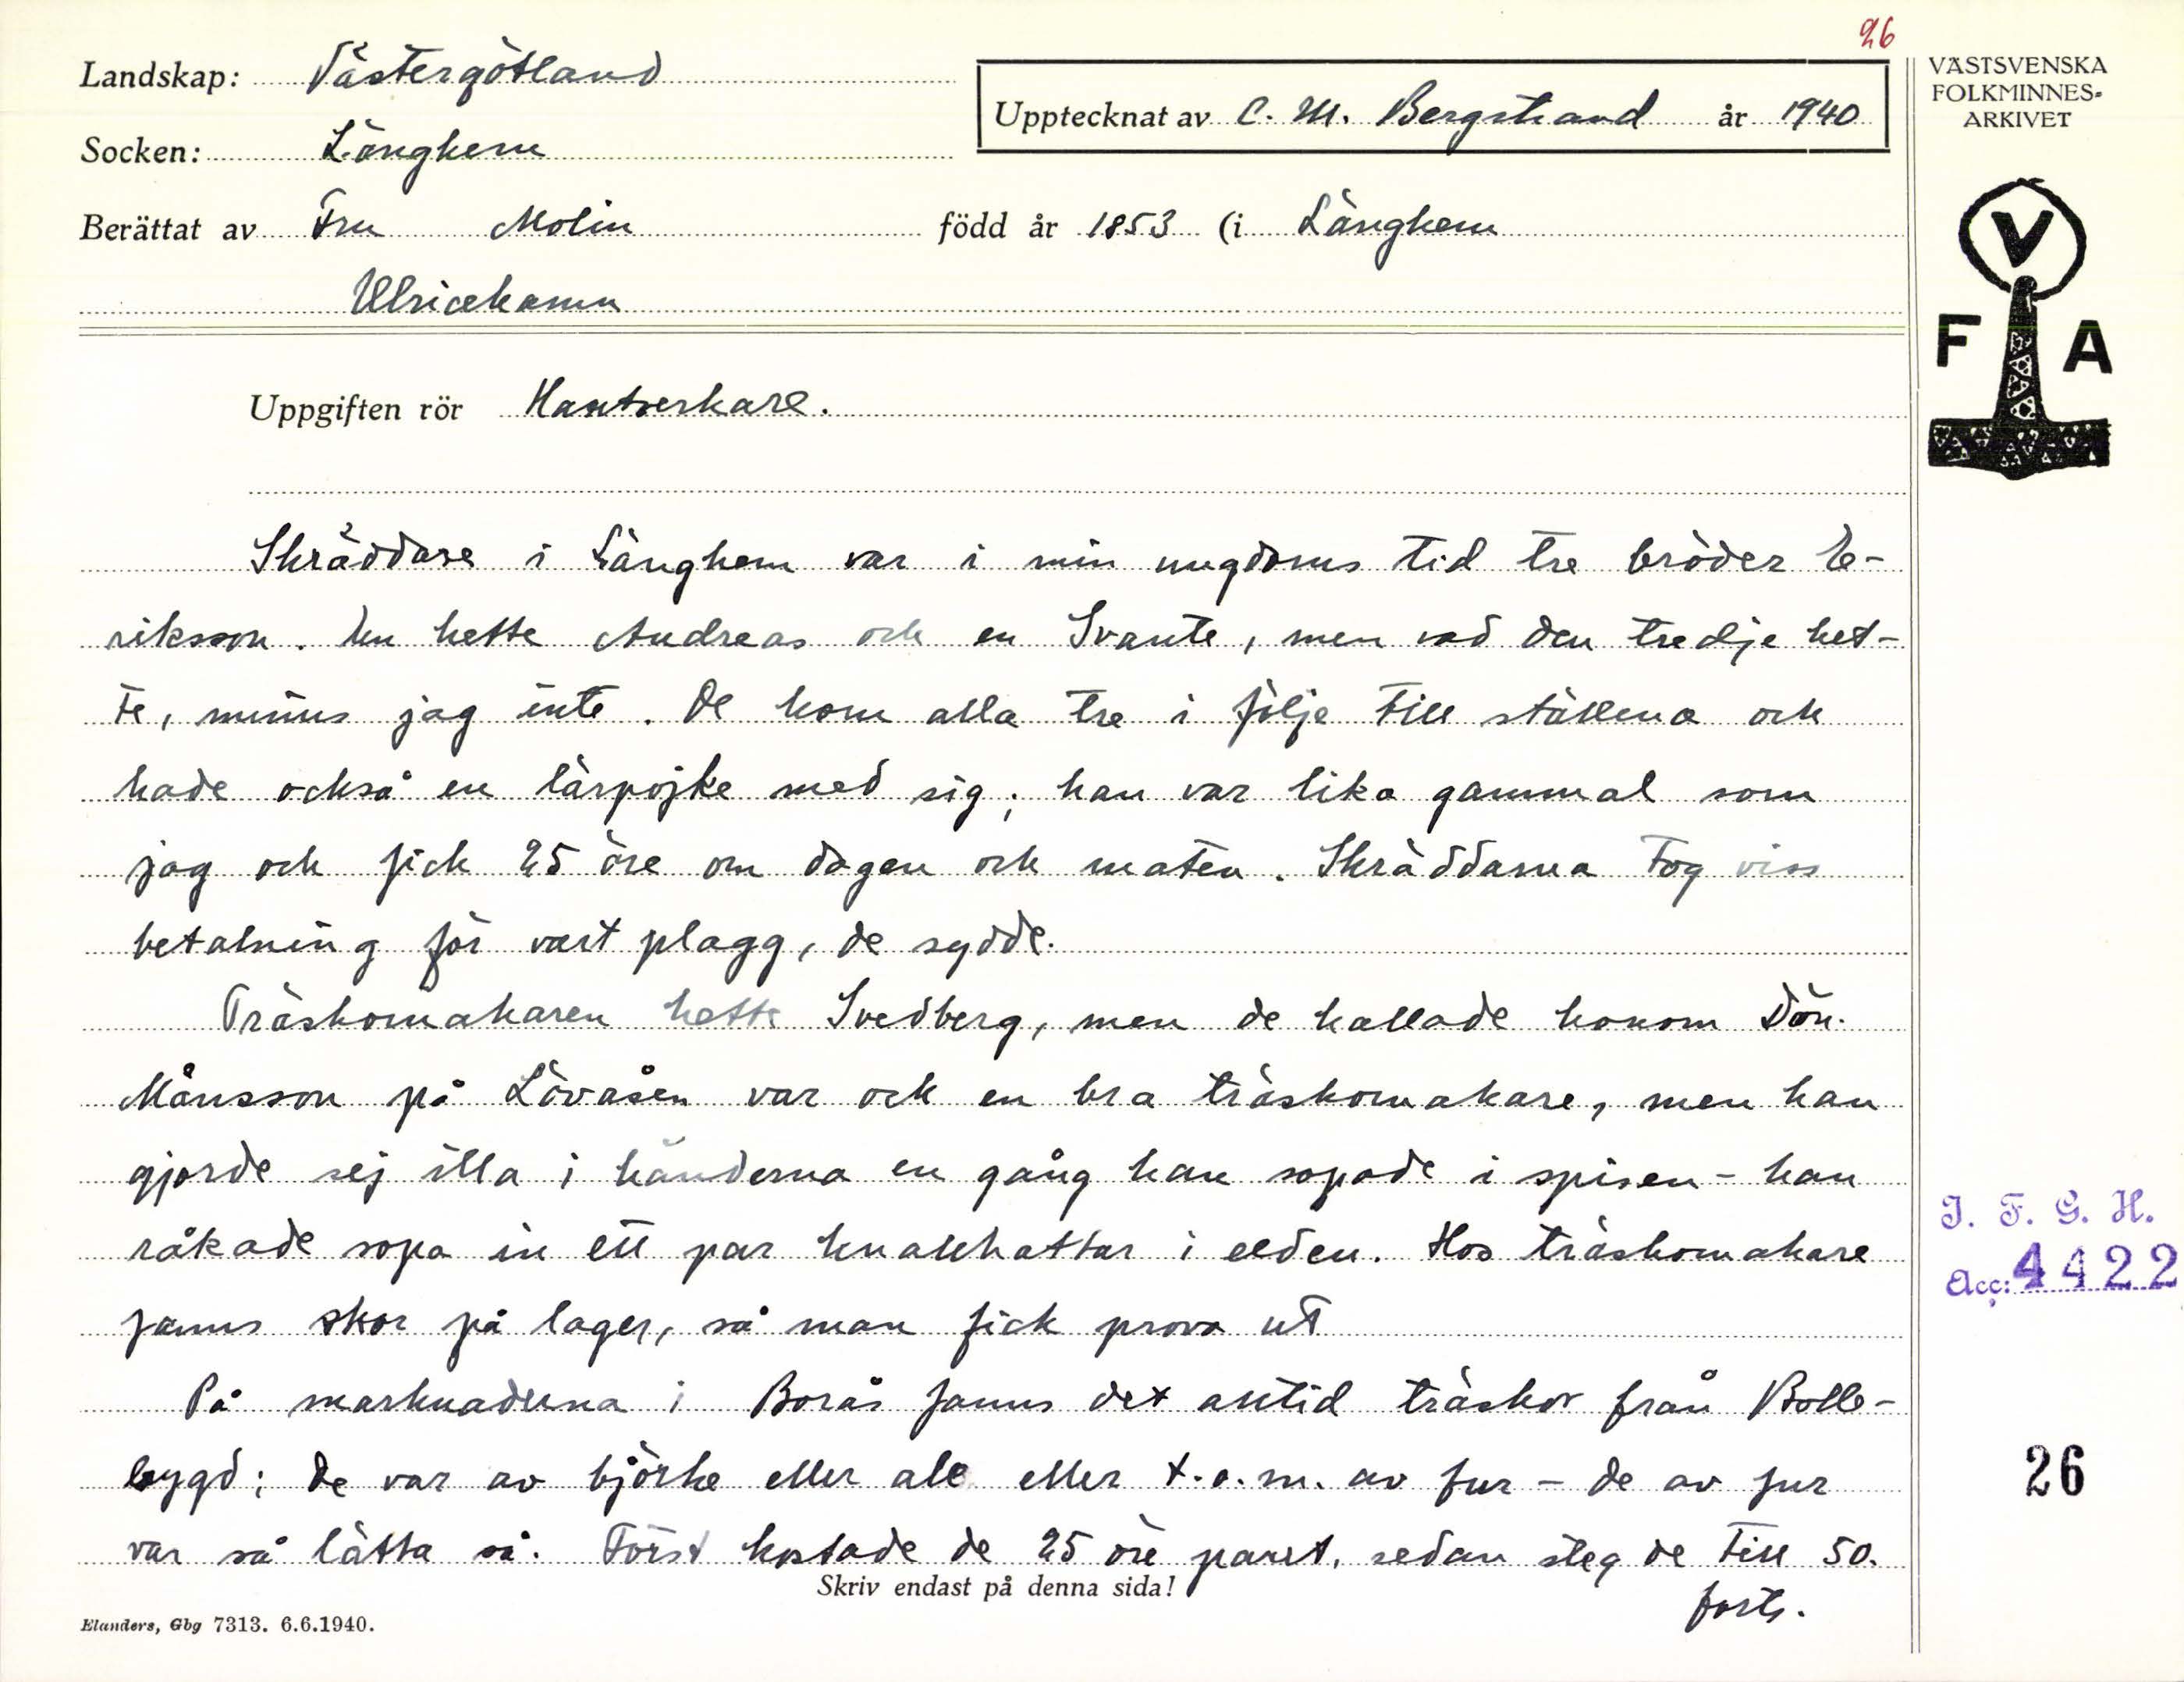 26
Landskap: Västergötland
Upptecknat av C. M. Bergstrand år 1940
Socken: Länghem
Berättat av Fru Molin född år 1853 (i Länghem
Ulricehamn
VÄSTSVENSKA
FOLKMINNES-
ARKIVET
V
F A
Uppgiften rör Hantverkare.
Skräddare i Länghem var i min ungdoms tid tre bröder E-
riksson. En hette Andreas och en Svante, men vad den tredje het-
te, minns jag inte. De kom alla tre i följe till ställena och
hade också en lärpojke med sig; han var lika gammal som
jag och fick 25 öre om dagen och maten. Skräddarna tog viss
betalning för vart plagg, de sydde.
Träskomakaren hette Svedberg, men de kallade honom Dön.
Månsson på Lövåsen var ock en bra träskomakare, men han
gjorde sej illa i händerna en gång han sopade i spisen - han
råkade sopa in ett par knallhattar i elden. Hos träskomakare
fanns skor på lager, så man fick prova ut
På marknaderna i Borås fanns det alltid träskor från Bolle-
bygd; de var av björke eller ale eller t.o.m. av fur - de av fur
var så lätta så. Först kostade de 25 öre paret, sedan steg de till 50.
forts.
Skriv endast på denna sida!
Elanders, Gbg 7313. 6.6.1940.
I. F. G. H.
Acc: 4422
26